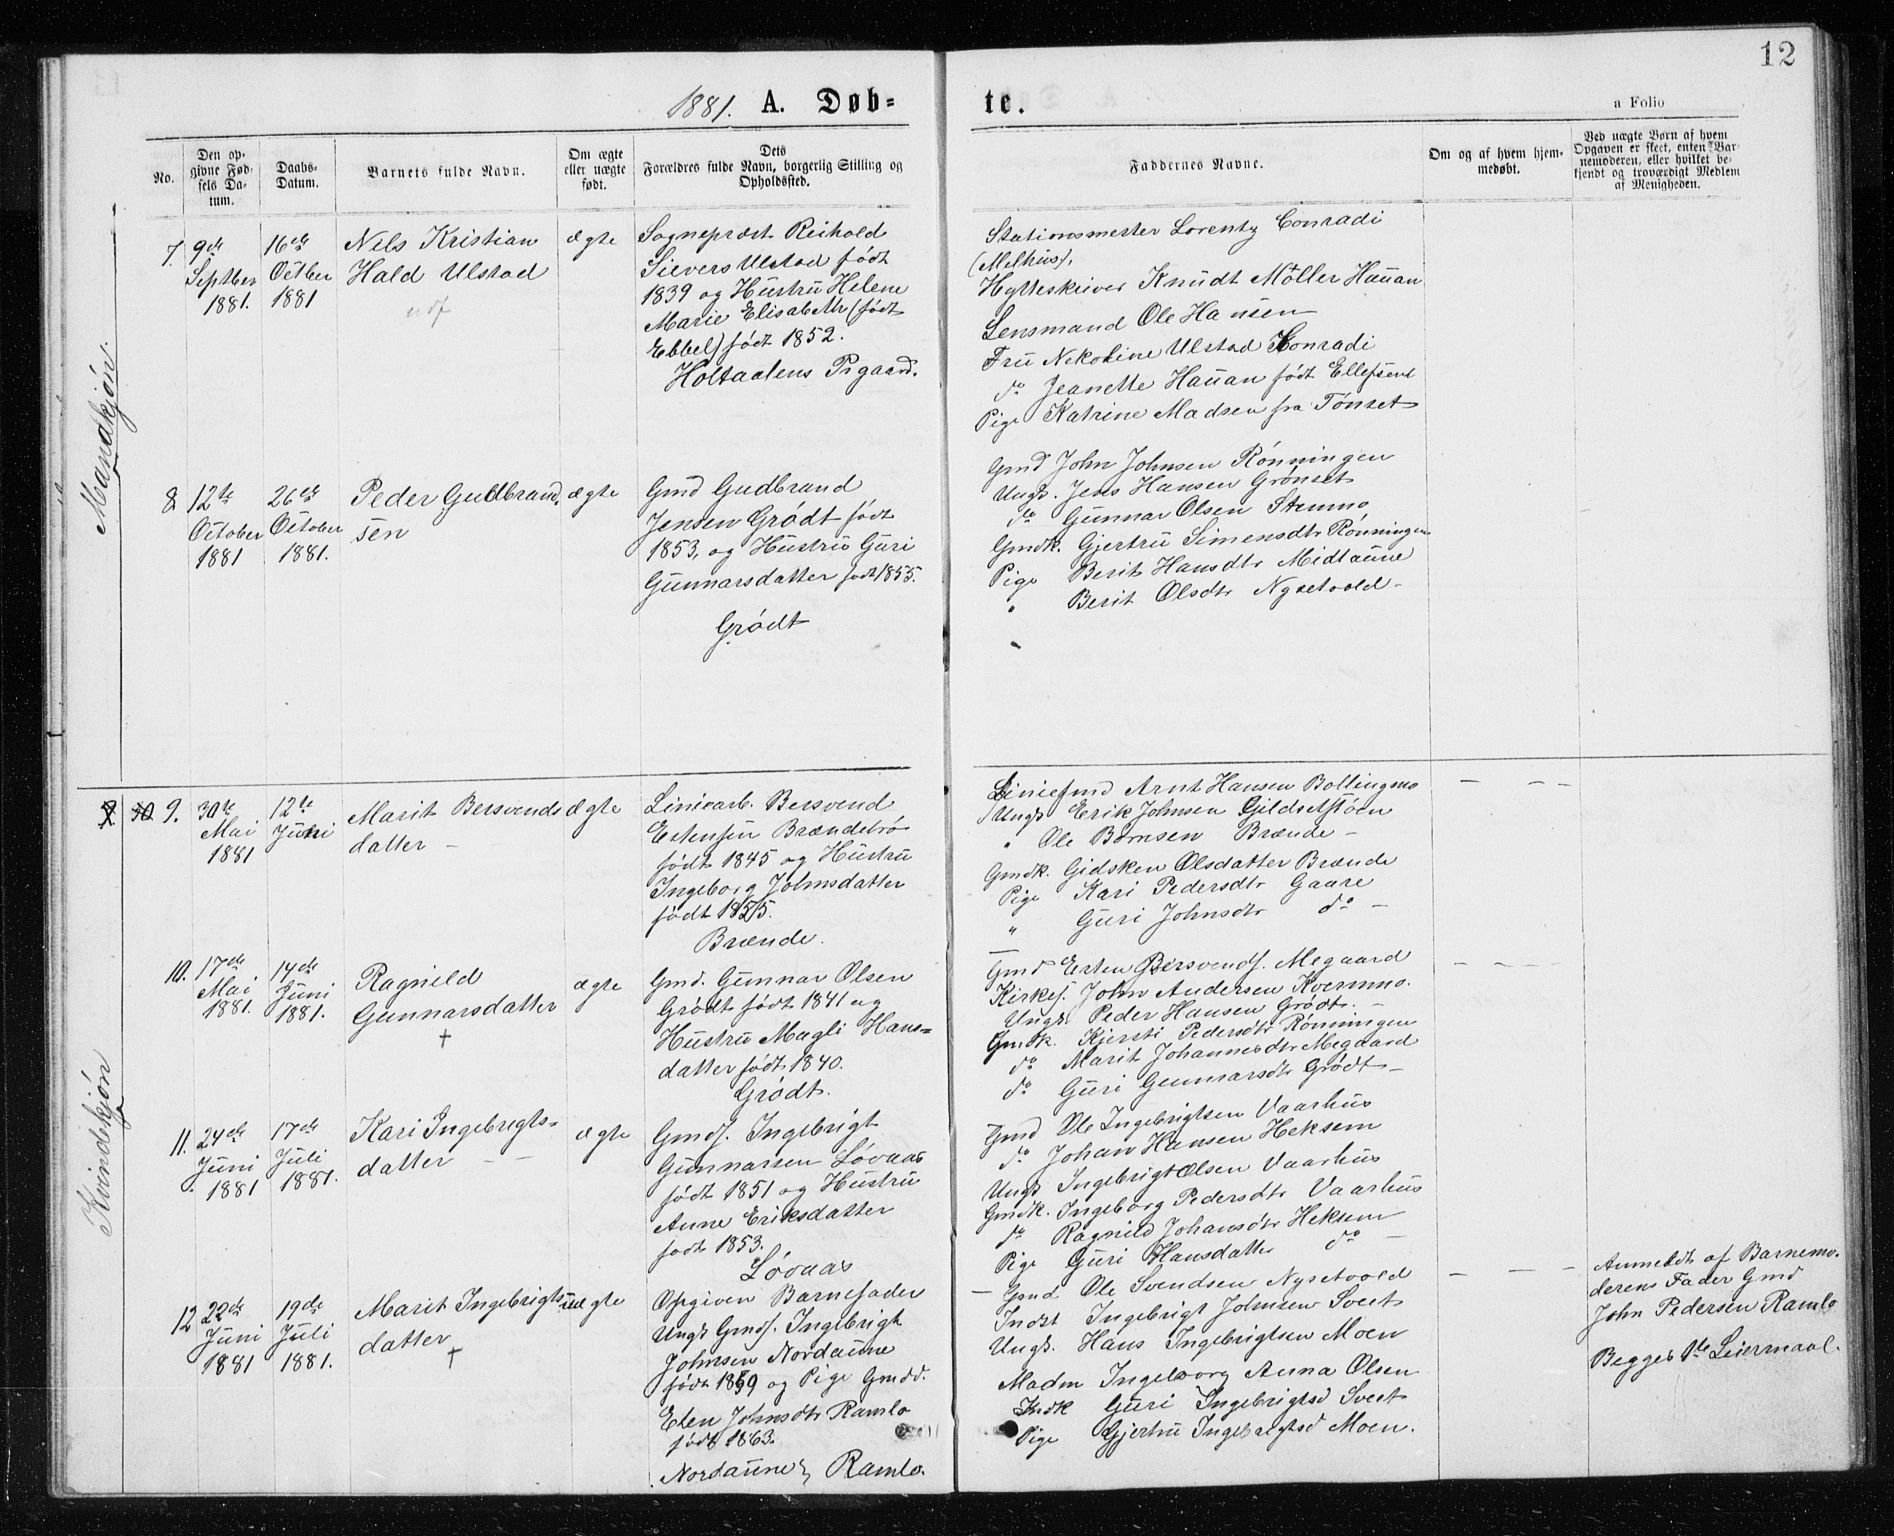 12
1881. A. Døb-
te.
a Folio
No.
Den op-
givne Fød-
sels Da-
tum.
Daabs-
Datum.
Barnets fulde Navn.
Om ægte
eller uægte
født.
Dets
Forældres fulde Navn, borgerlig Stilling og
Opholdssted.
Faddernes Navne.
Om og af hvem hjem-
medøbt.
Ved uægte Børn af hvem
Opgaven er skeet, enten Bar-
nemoderen, eller hvilket be-
kjendt og troværdigt Medlem
af Menigheden.
Mandkjøn.
7.
9de
Septber
1881.
16de
Octber
1881
Nils Kristian
Hald Ulstad
ægte
Sognepræst Reihold
Sievers Ulstad født
1839 og Hustru Helene
Marie Elisabeth (født
Ebbel) født 1852.
Holtaalens Prgaard.
Stationsmester Lorentz Conradi
(Melhus),
Hytteskriver Knudt Möller Hauan
Lensmand Ole Hansen
Fru Nekoline Ulstad Konradi
do Jeanette Hauan født Ellefsen
Pige Katrine Madsen fra Tønset
8
12te
October
1881
26de
October
1881.
Peder Guldbrand-
sen
ægte
Gmd Gudbrand
Jensen Grödt født
1853, og Hustru Guri
Gunnarsdatter født 1855.
Grödt
Gmd John Johnsen Rönningen
Ungk. Jens Hansen Grönset
do Gunnar Olsen Stenmo
Gmdk. Gjertru Simensdtr Rönningen
Pige Berit Hansdtr Midtaune
" Berit Olsdtr Nysetvold -
Kvindekjön
9.
30te
Mai
1881
12te
Juni
Marit Bersvends
datter -
ægte
Liniearb. Bersvend
Estensen Brændebrö
født 1845 og Hustru
Ingeborg Johnsdatter
født 1855.
Brænde.
Liniefmd Arnt Hansen Bollingmo
Ungk Erik Johnsen Gjildsetstöen
" Ole Börnsen Brænde -
Gmdk. Gidsken Olsdatter Brænde
Pige Kari Pedersdtr Gaare
" Guri Johnsdtr do -
10.
17de
Mai
1881.
14de
Juni
1881.
Ragnild
Gunnarsdatter
+
ægte
Gmd. Gunnar Olsen
Grödt født 1841 og
Hustru Magli Hans=
datter født 1840.
Grödt.
Gmd Esten Bersvends. Megaard
Kirkes. John Andersen Kvernmo.
Ungk Peder Hansen Grödt. -
Gmdk. Kjersti Pedersdtr Rönningen
do Marit Johannesdtr Megaard
do Guri Gunnarsdtr Grödt -
11.
24de
Juni
1881
17de
Juli
1881.
Kari Ingebrigts=
datter - -
ægte
Gmds. Ingebrigt
Gunnarsen Lövaas
født 1851 og Hustru
Anne Eriksdatter
født 1853.
Lövaas
Gmd Ole Ingebrigtsen Vaarhus
do Johan Hansen Heksem
Ungk Ingebrigt Olsen Vaarhus
Gmdk. Ingeborg Pedersdtr Vaarhus
do Ragnild Johansdtr Heksem
Pige Guri Hansdatter do -
12
22de
Juni
1881
19de
Juli
1881.
Marit Ingebrigts
datter
+
uægte
Opgiven Barnefader
Ungk Gmds. Ingebrigt
Johnsen Nordaune
født 1859 og Pige Gmdd.
Elen Johnsdtr Ramlo
født 1863.
Nordaune, Ramlo.
Gmd Ole Svendsen Nysetvold
Indst Ingebrigt Johnsen Sveet
Ungk. Hans Ingebrigtsen Moen
Madm Ingeborg Anna Olsen
Indk Guri Ingebrigtsd Sveet
Pige Gjertru Ingebrigtsd Moen.
Anmeldt af Barnemo-
derens Fader Gmd
John Pedersen Ramlo
Begges 1te Leiermaal.